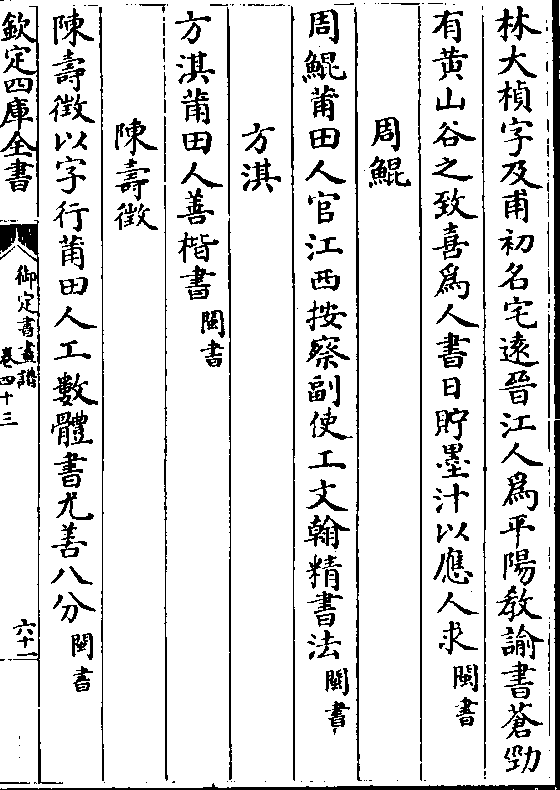 林大楨字及甫初名宅逺晉江人為平陽教諭書蒼勁
有黄山谷之致喜為人書日貯墨汁以應人求閩書
周鯤
周鯤莆田人官江西按察副使工文翰精書法閩書
方淇
方淇莆田人善楷書閩書
陳壽徵
陳壽徵以字行莆田人工數體書尤善八分閩書
欽定四庫全書
御定書畫譜
卷四十三
六十一